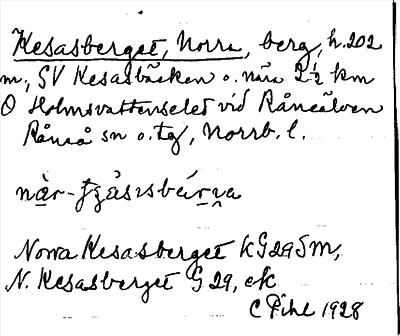 Kesasberget, Norra, berg, h. 202
m., SV Kesasbäcken o. nära 2½ km
O Holmsvattenselet vid Råneälven
Råneå sn o. tg, Norrb. l.
Norra Kesasberget KG29SM,
N. Kesasberget G 29, ek
C Pihl 1928